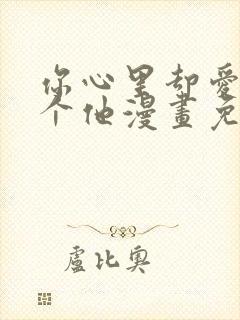 你心里却爱
个他漫畫免
盧比奧